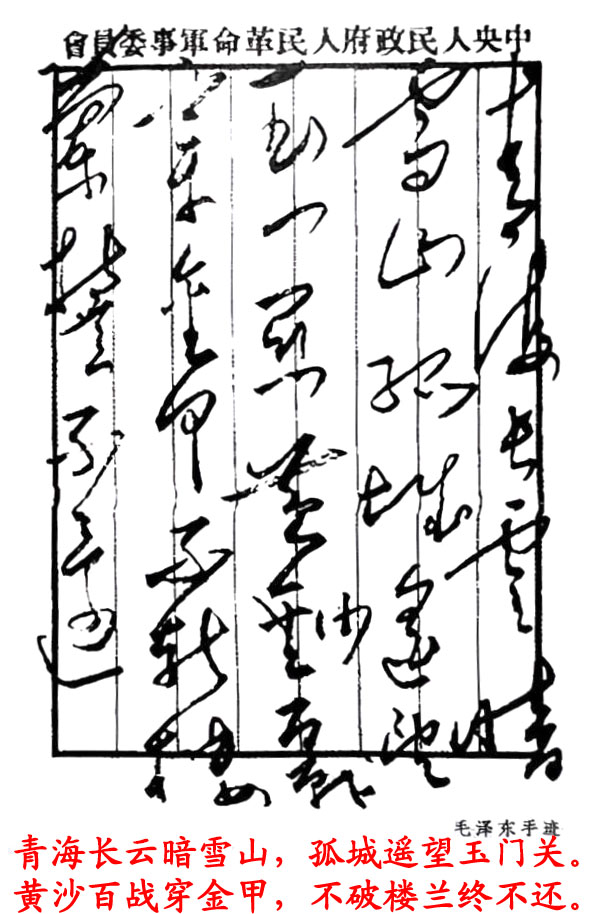 中央人民政府人民革命軍事委員會
青海長雲暗
雪山孤城遙望
玉門關黃沙百戰
穿金甲不斬樓
蘭誓不還
毛泽东手迹
青海长云暗雪山，孤城遥望玉门关。
黄沙百战穿金甲，不破楼兰终不还。